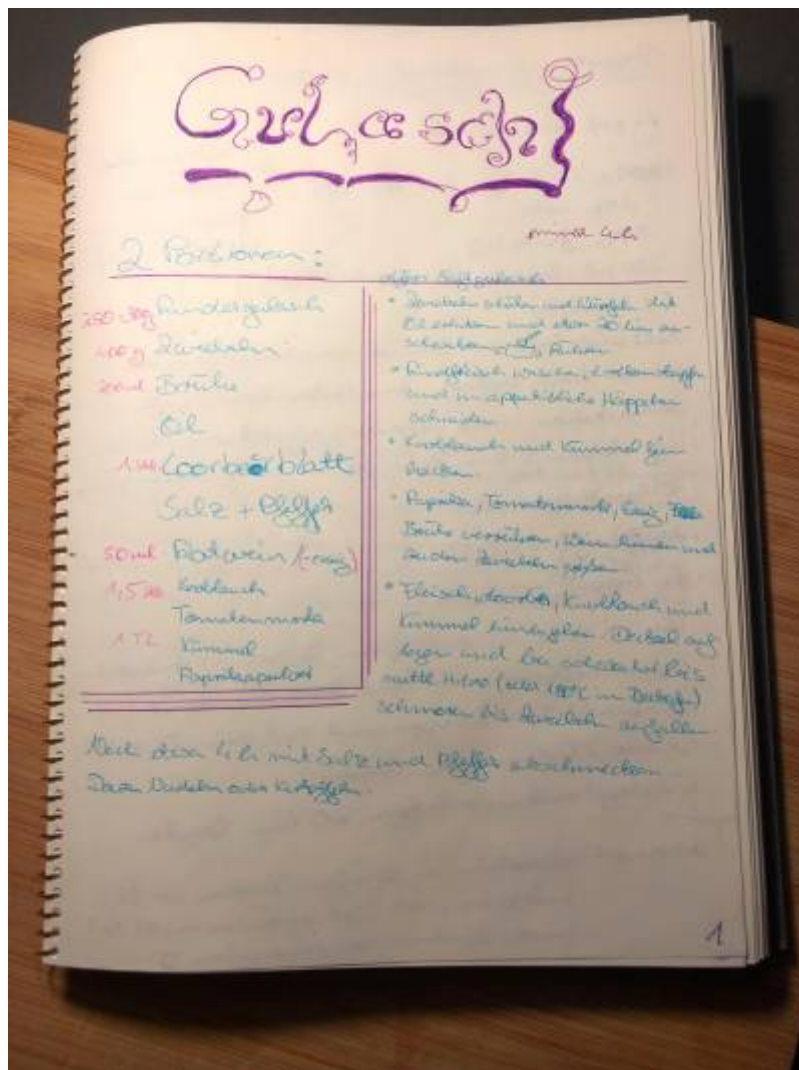 Gulasch
2 Portionen:
Rindergulasch
400 g Zwiebeln
200ml Brühe
Öl
Loorbeerblatt
Salz + Pfeffer
50ml Rotwein (+essig)
1,5 Knoblauch
Tomatenmark
1 TL Kümmel
Paprikapulver
Saftgulasch
• Zwiebeln schälen und würfeln. Mit
Öl erhitzen und etwa 20 min
• Rindfleisch waschen, trocken tupfen
und in appetitliche Häppchen
schneiden
• Knoblauch und Kümmel fein
hacken
• Paprika, Tomatenmark, Essig,
Brühe verrühren, und
zu den Zwiebeln gießen
• Fleisch, Knoblauch und
Kümmel hinzugeben. Deckel auf
legen und bei schwacher bis
mittl. Hitze (oder 180°C im Backofen)
schmoren bis Zwiebeln zerfallen
Nach etwa 4h mit Salz und Pfeffer abschmecken
Dazu Nudeln oder Kartoffeln.
1